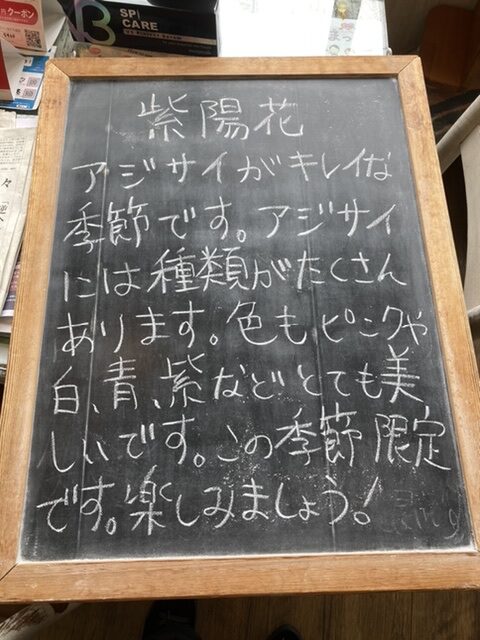 クーポン
B
SPI
CARE
紫陽花
アジサイがキレイな
季節です。アジサイ
には種類がたくさん
あります。色もピンクや
白、青、紫などとても美
しいです。この季節限定
です。楽しみましょう!